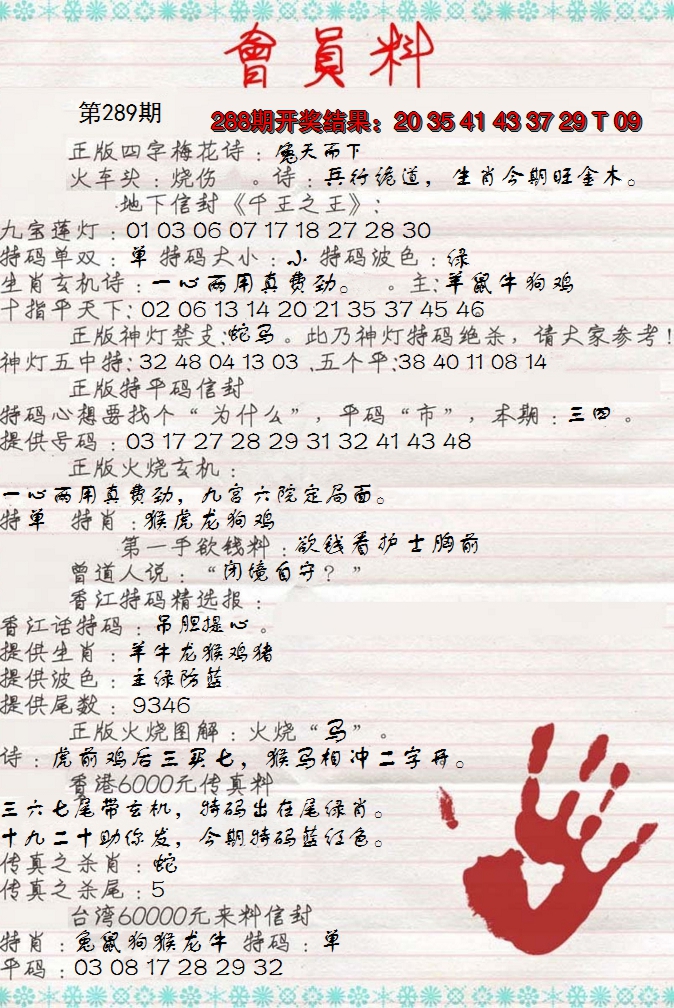 會員料
第289期
288期开奖结果：20 35 41 43 37 29 T 09
正版四字梅花诗：兔天而下
火车头：烧伤 。诗：兵行诡道，生肖今期旺金木。
地下信封《千王之王》：
九宝莲灯：01 03 06 07 17 18 27 28 30
特码单双：单 特码大小：小 特码波色：绿
生肖玄机诗：一心两用真费劲。 。主：羊鼠牛狗鸡
十指平天下：02 06 13 14 20 21 35 37 45 46
正版神灯禁支：蛇马。此乃神灯特码绝杀，请大家参考！
神灯五中特：32 48 04 13 03 .五个平：38 40 11 08 14
正版特平码信封
特码心想要找个“为什么”，平码“市”，本期：三四。
提供号码：03 17 27 28 29 31 32 41 43 48
正版火烧玄机：
一心两用真费劲，九宫六院定局面。
特单 特肖：猴虎龙狗鸡
第一手欲钱料：欲钱看护士胸前
曾道人说：“闭境自守？”
香江特码精选报：
香江话特码：吊胆提心。
提供生肖：羊牛龙猴鸡猪
提供波色：主绿防蓝
提供尾数：9346
正版火烧图解：火烧“马”。
诗：虎前鸡后三买七，猴马相冲二字开。
香港6000元传真料
三六七尾带玄机，特码出在尾绿肖。
十九二十助你发，今期特码蓝红色。
传真之杀肖：蛇
传真之杀尾：5
台湾60000元来料信封
特肖：兔鼠狗猴龙牛 特码：单
平码：03 08 17 28 29 32